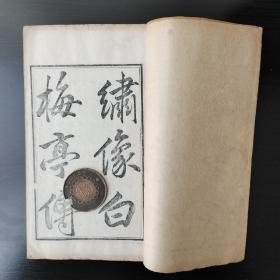 繡像白
梅亭傳